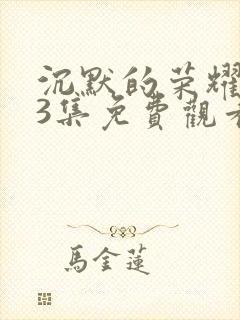 沉默的荣耀
3集免費觀看
馬金蓮